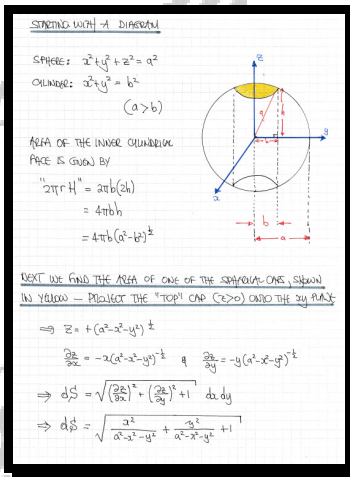 STARTING WITH A DIAGRAM
SPHERE: x²+y²+z² = a²
CYLINDER: x²+y² = b²
(a>b)
AREA OF THE INNER CYLINDRICAL
FACE IS GIVEN BY
"2πrH" = 2πb(2h)
= 4πbh
= 4πb(a²-b²)^½
z
a
h
b
y
x
b
a
NEXT WE FIND THE AREA OF ONE OF THE SPHERICAL CAPS, SHOWN
IN YELLOW — PROJECT THE "TOP" CAP (z>0) ONTO THE xy PLANE
⇒ z = +(a²-x²-y²)^½
∂z/∂x = -x(a²-x²-y²)^-½ & ∂z/∂y = -y(a²-x²-y²)^-½
⇒ dS = √((∂z/∂x)² + (∂z/∂y)² + 1) dx dy
⇒ dS = √(x²/(a²-x²-y²) + y²/(a²-x²-y²) + 1)